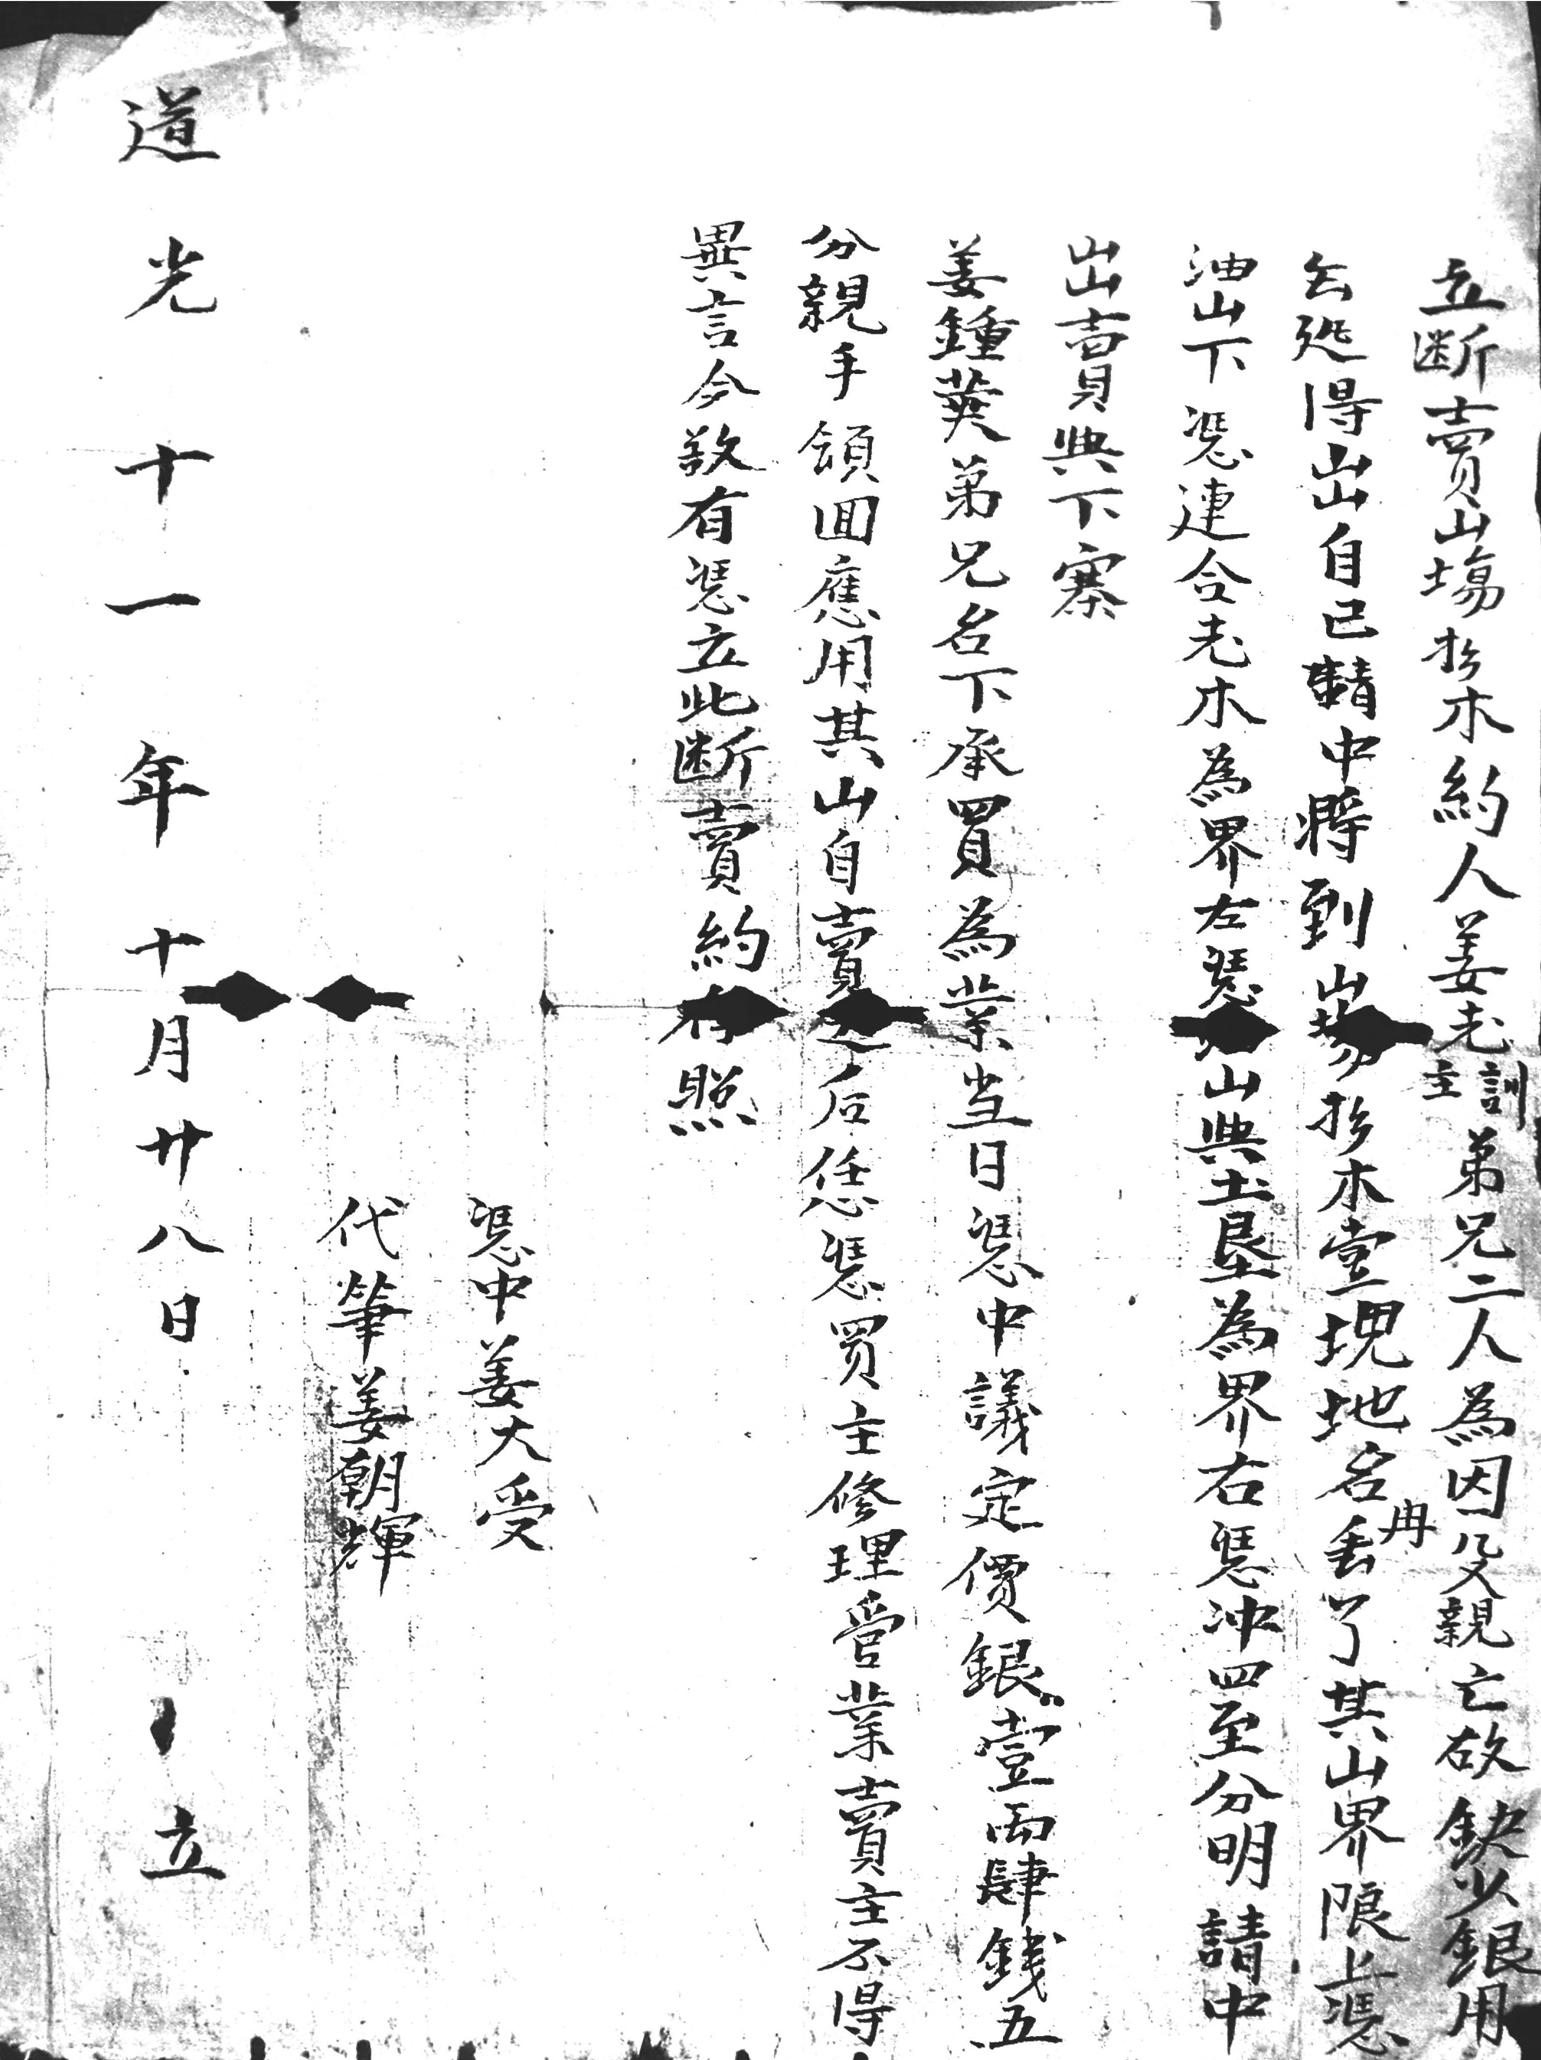 立断賣山塲杉木約人姜老訓主弟兄二人為因父親亡故缺少銀用
無處得出自己請中將到山塲杉木壹塊地名冉丢了其山界限上憑
油山下憑連合老木為界左憑山與土墾為界右憑冲四至分明請中
出賣與下寨
姜鍾英弟兄名下承買為業当日憑中議定價銀壹両肆錢五
分親手領囬應用其山自賣之后恁憑買主修理管業賣主不得
異言今欲有憑立此断賣約存照
憑中姜大受
代筆姜朝輝
道光十一年十月廿八日 立